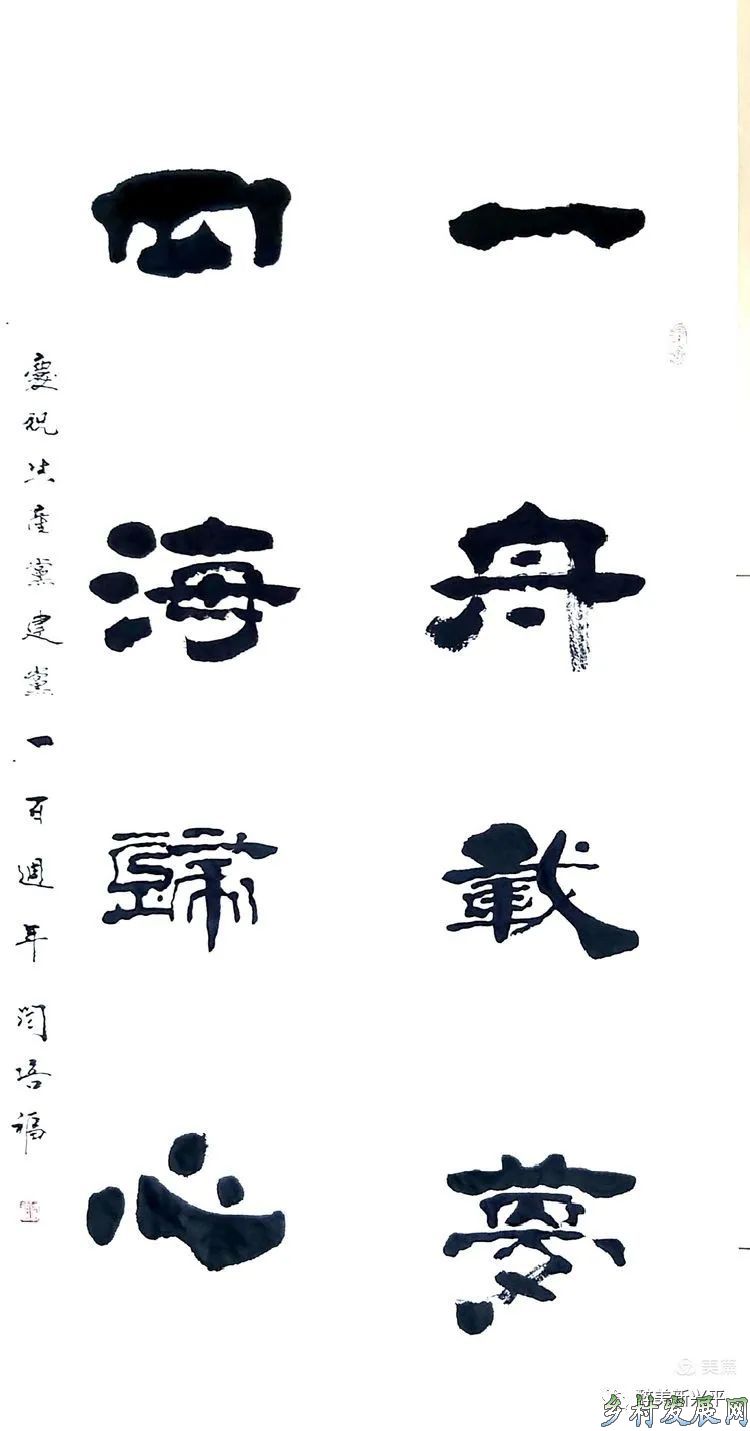 一舟載夢
四海歸心
慶祝共產黨建黨一百週年 閆培福
美篇
醉美新兴平
乡村发展网